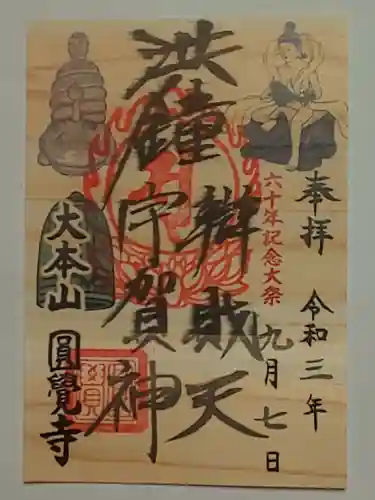 奉拝 令和三年
九月七日
六十年記念大祭
洪鐘 辨財天
宇賀神
大本山
圓覺寺